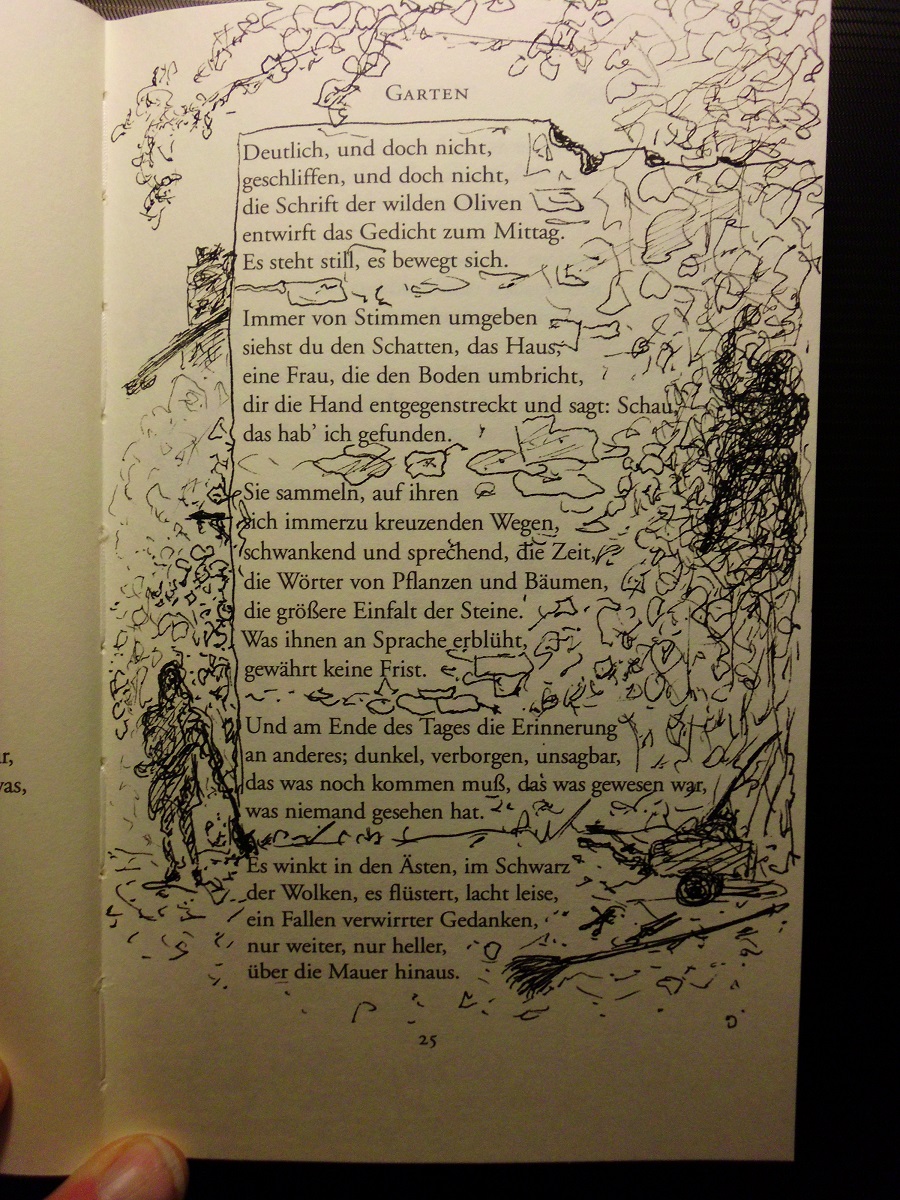 GARTEN
Deutlich, und doch nicht,
geschliffen, und doch nicht,
die Schrift der wilden Oliven
entwirft das Gedicht zum Mittag.
Es steht still, es bewegt sich.
Immer von Stimmen umgeben
siehst du den Schatten, das Haus,
eine Frau, die den Boden umbricht,
dir die Hand entgegenstreckt und sagt: Schau,
das hab’ ich gefunden.
Sie sammeln, auf ihren
sich immerzu kreuzenden Wegen,
schwankend und sprechend, die Zeit,
die Wörter von Pflanzen und Bäumen,
die größere Einfalt der Steine.
Was ihnen an Sprache erblüht,
gewährt keine Frist.
Und am Ende des Tages die Erinnerung
an anderes; dunkel, verborgen, unsagbar,
das was noch kommen muß, das was gewesen war,
was niemand gesehen hat.
Es winkt in den Ästen, im Schwarz
der Wolken, es flüstert, lacht leise,
ein Fallen verwirrter Gedanken,
nur weiter, nur heller,
über die Mauer hinaus.
25